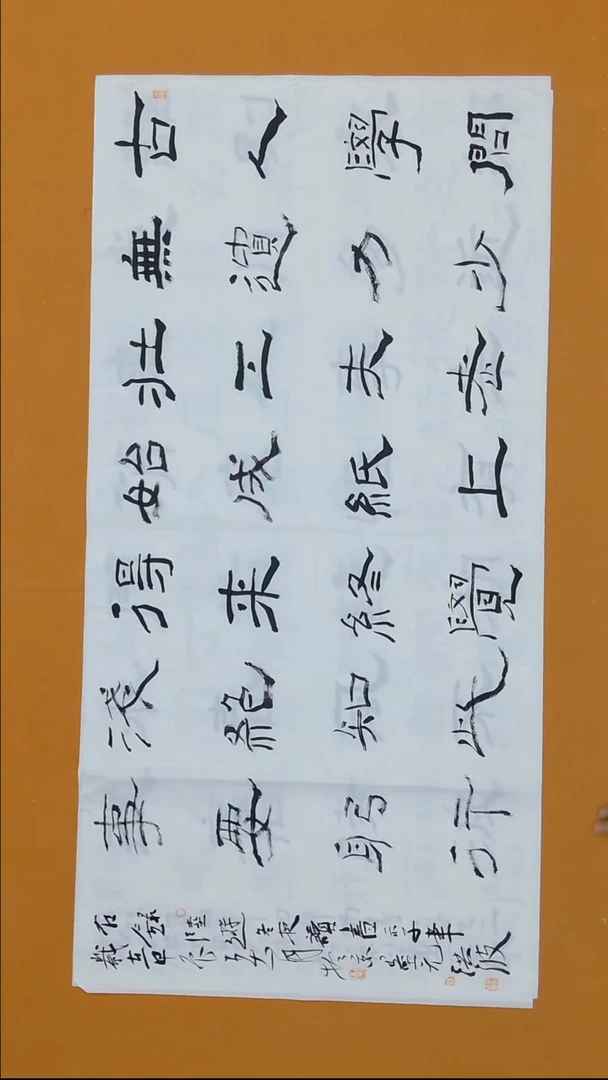 古人學問
無遺力少
壯工夫老
始成紙上
得来終覺
淺絕知此
事要躬行
右錄陸遊冬夜讀書示子聿
洪波